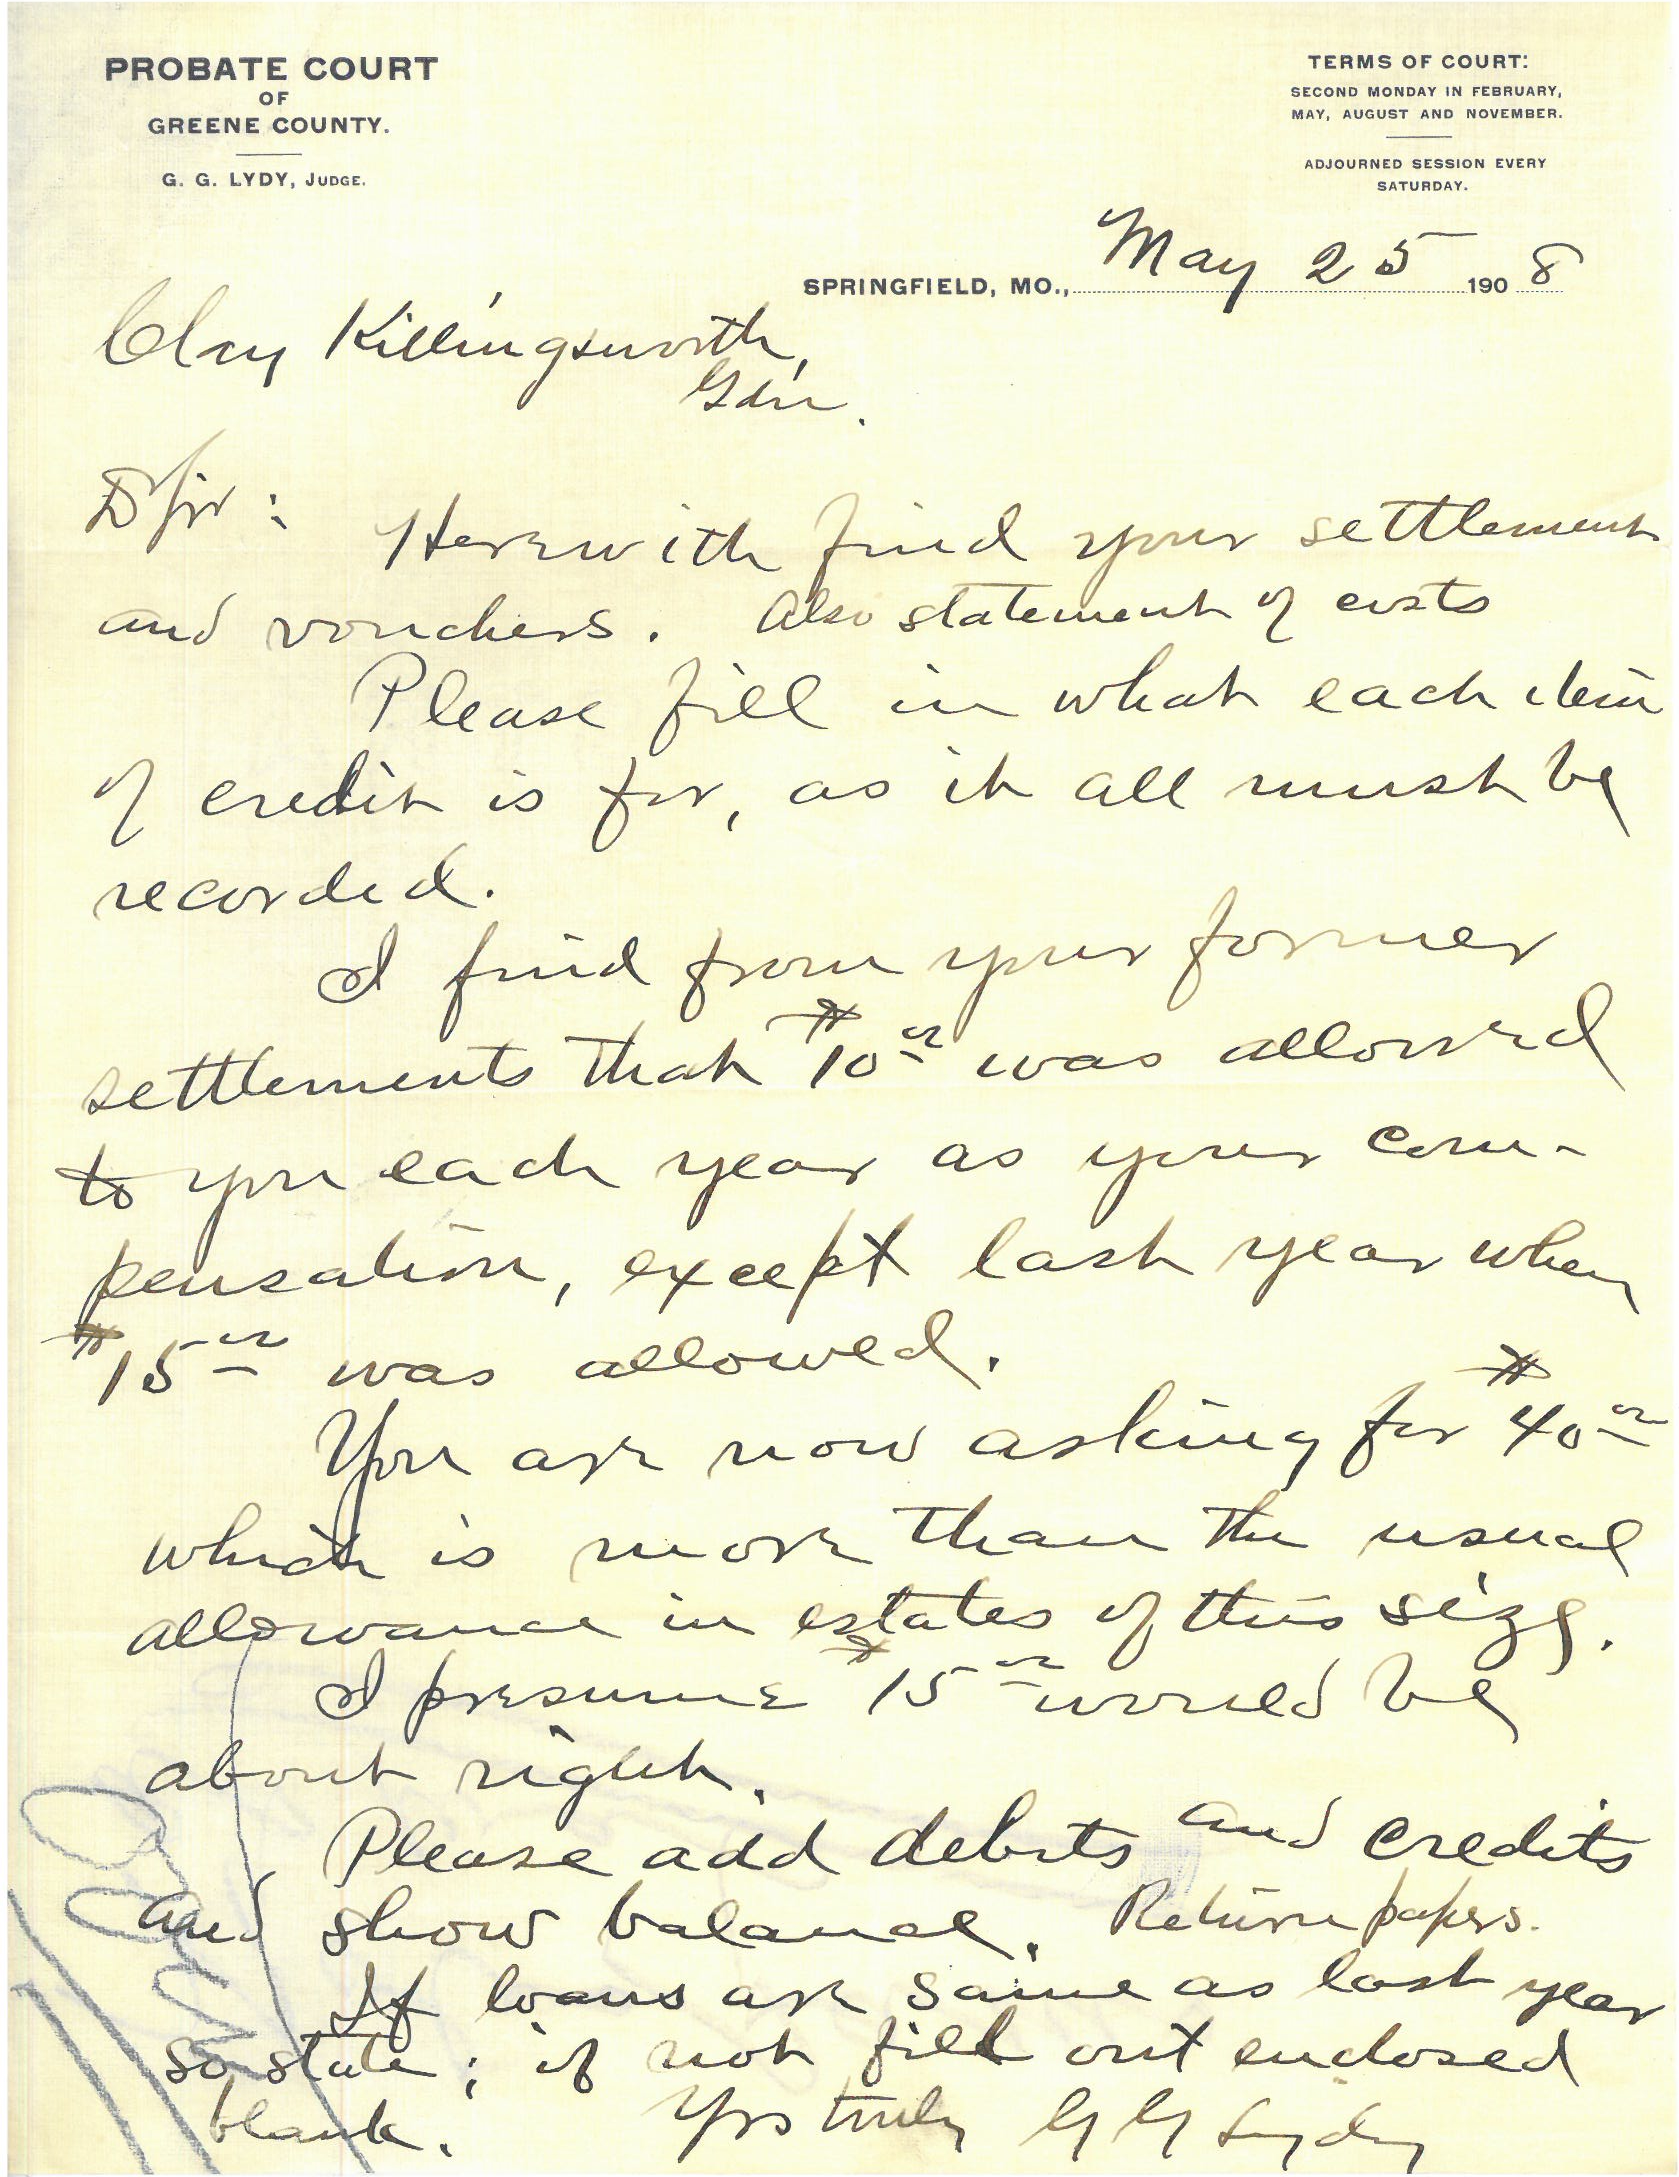 PROBATE COURT
OF
GREENE COUNTY.
G. G. LYDY, JUDGE.
TERMS OF COURT:
SECOND MONDAY IN FEBRUARY,
MAY, AUGUST AND NOVEMBER.
ADJOURNED SESSION EVERY
SATURDAY.
SPRINGFIELD, MO., May 25 1908
Clay Killingsworth,
Gdn.
D Sir :
Herewith find your settlement
and vouchers. Also statement of costs
Please fill in what each item
of credit is for, as it all must be
recorded.
I find from your former
settlements that $10 00 was allowed
to you each year as your com-
pensation, except last year when
$15 00 was allowed.
You are now asking for $40 00
which is more than the usual
allowance in estates of this size.
I presume $15 00 would be
about right.
Please add debits and credits
and show balance. Return papers.
If loans are same as last year
so state ; if not fill out enclosed
blank. Yrs truly G G Lydy